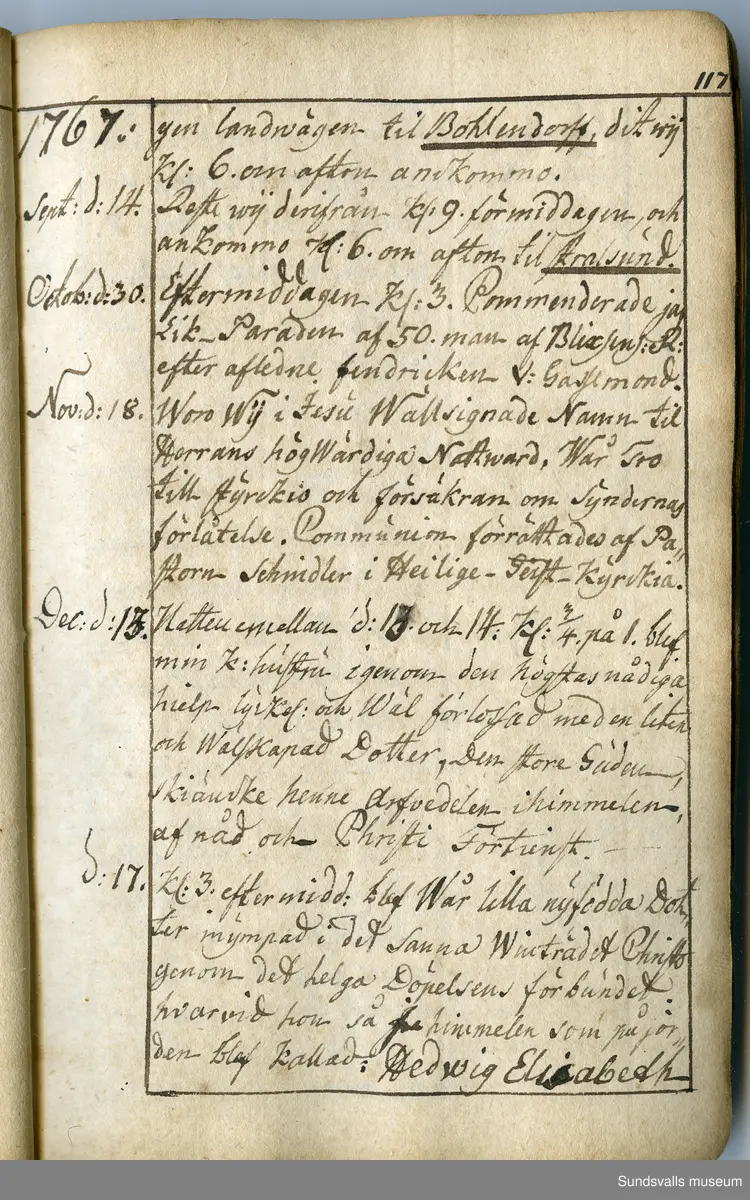 117
1767: gen landwägen til Bohlendorff, dit wij
Kl: 6. om afton ankommo.
Sept: d: 14. Reste wij derifrån Kl: 9. förmiddagen, och
ankommo Kl: 6. om afton til Stralsund.
Octob: d: 30. Eftermiddagen Kl: 3. Commenderade jag
Lik-Paraden af 50. man af Blixens: R:
efter afledne fendricken V: Gassmond.
Nov: d: 18. Woro Wij i Jesu Wälsignade Namn til
Herrans högWärdiga Nattward, Wår Tro
till styrckio och försäkran om Syndernas
förlåtelse. Communion förrättades af Pa„
storn Schindler i Heilige-Geist-Kyrckia.
Dec: d: 13. Natten emellan d: 13. och 14. Kl: 3/4 på 1. blef
min K: hustru igenom den högstas nådiga
hielp lyckel: och Wäl förlossad med en liten
och Walskapad Dotter, Den store Guden,
skiäncke henne Arfvedelen i himmelen,
af nåd och Christi Förtienst.
d: 17. Kl: 3. eftermidd: blef Wår lilla nyfödda Dot„
ter inympad i det sanna Winträdet Christo
genom det helga Döpelsens förbundet.
hvarvid hon så i himmelen som på jor„
den blef Kallad: Hedwig Elisabeth
Sundsvalls museum